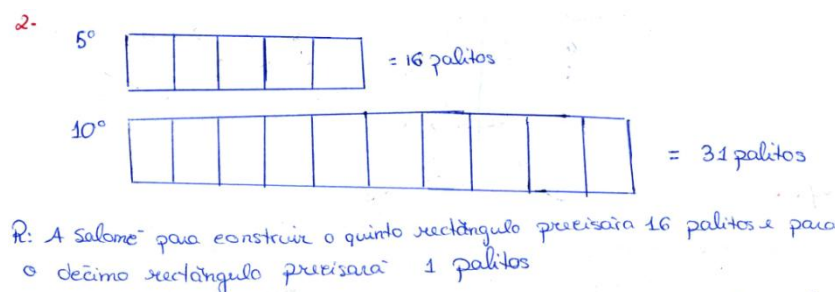 2-
5º = 16 palitos
10º = 31 palitos
R: A Salomé para construir o quinto rectângulo precisará 16 palitos e para
o décimo rectângulo precisará 1 palitos